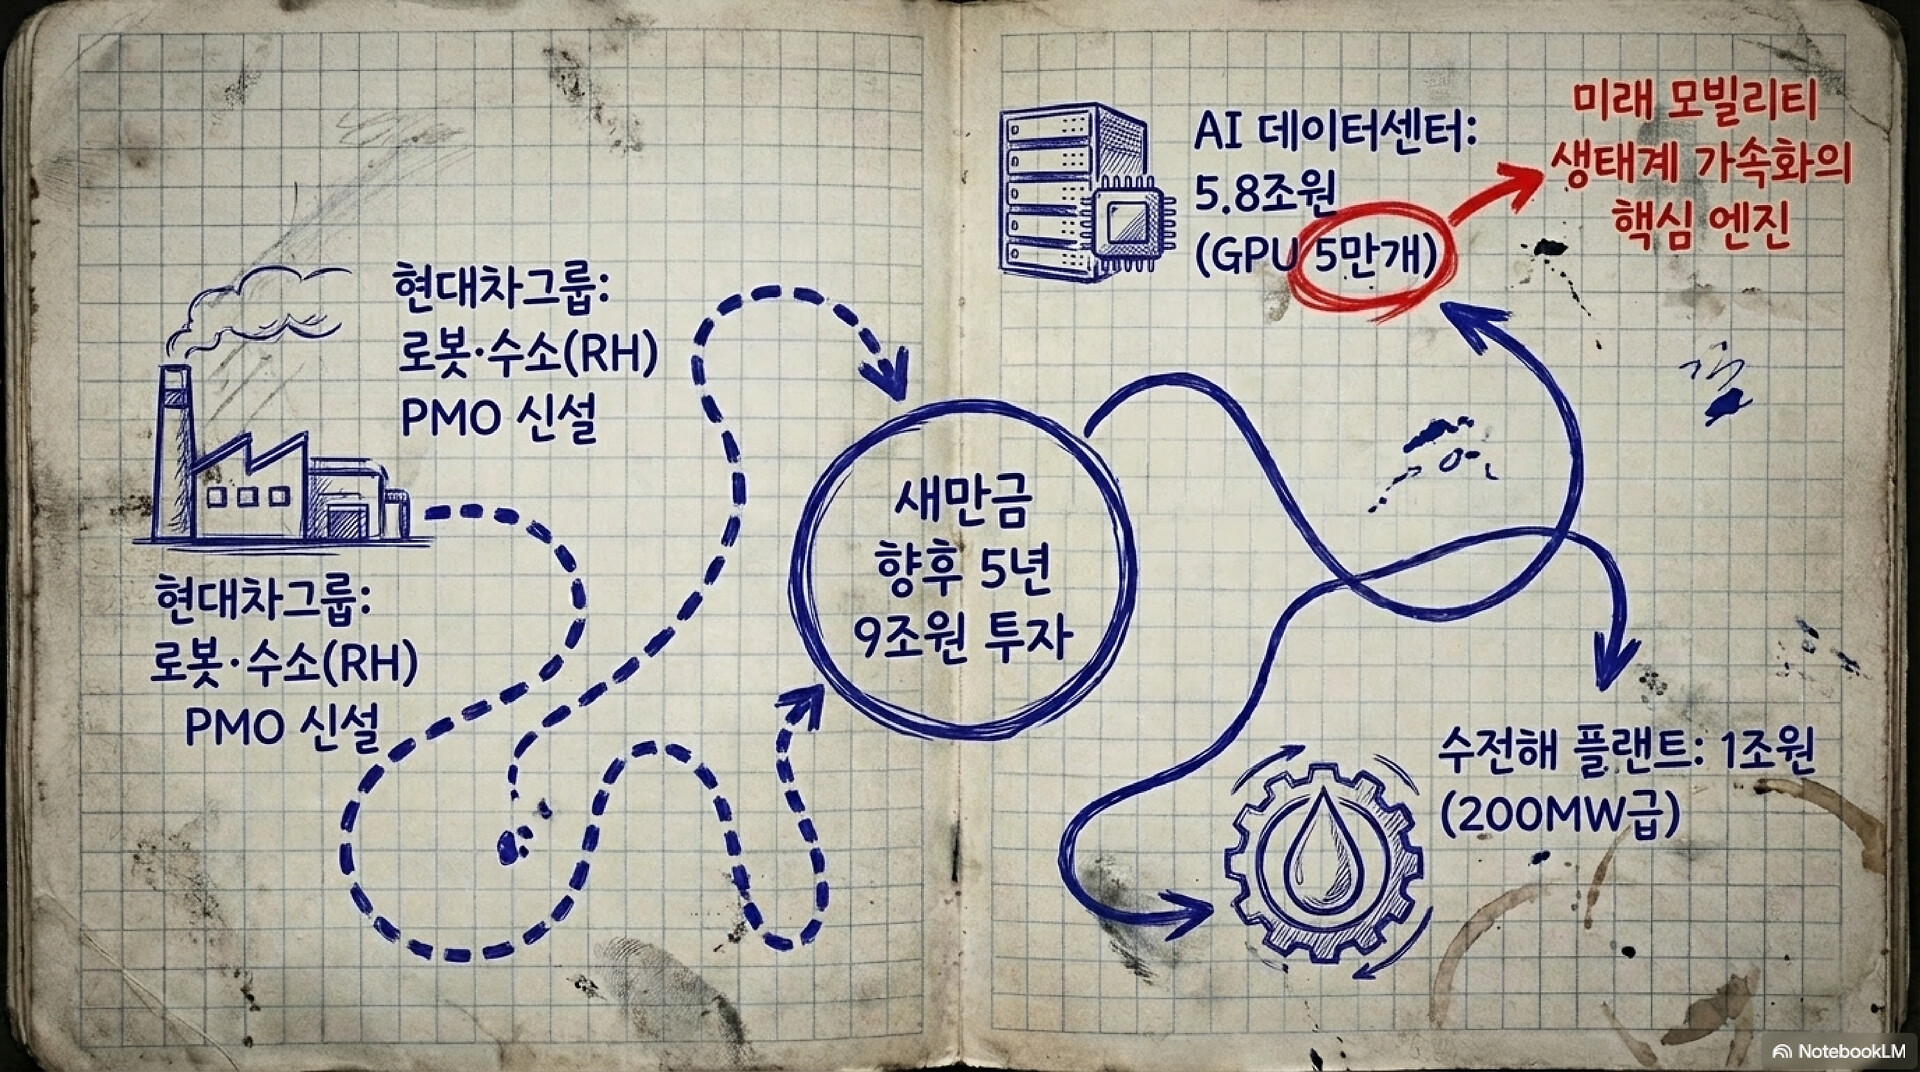 현대차그룹:
로봇·수소(RH)
PMO 신설
현대차그룹:
로봇·수소(RH)
PMO 신설
새만금
향후 5년
9조원 투자
AI 데이터센터:
5.8조원
(GPU 5만개)
미래 모빌리티
생태계 가속화의
핵심 엔진
수전해 플랜트: 1조원
(200MW급)
NotebookLM